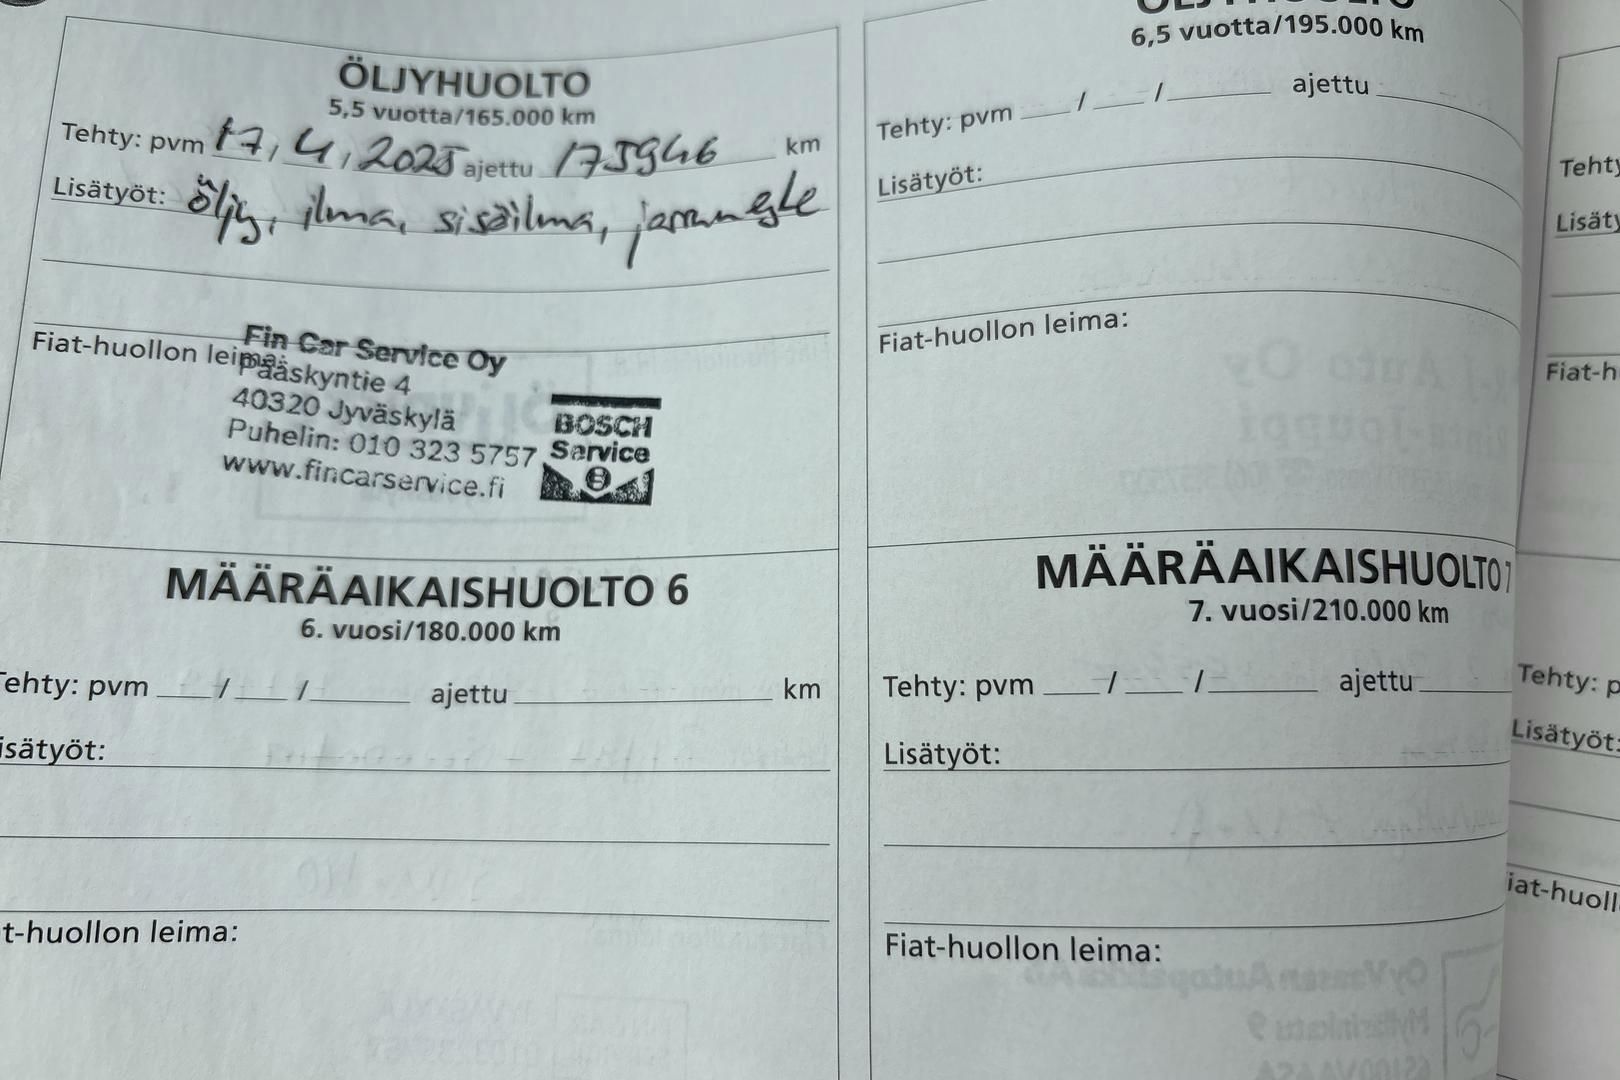 ÖLJYHUOLTO
5,5 vuotta/165.000 km
Tehty: pvm 17, 4, 2025 ajettu 175946 km
Lisätyöt: öljy, ilma, sisäilma, jarruneste
Fiat-huollon leima:
Fin Car Service Oy
Pääskyntie 4
40320 Jyväskylä
Puhelin: 010 323 5757
www.fincarservice.fi
BOSCH
Service
MÄÄRÄAIKAISHUOLTO 6
6. vuosi/180.000 km
Tehty: pvm ___/___/___ ajettu ___ km
isätyöt:
t-huollon leima:
ÖLJYHUOLTO
6,5 vuotta/195.000 km
Tehty: pvm ___/___/___ ajettu ___
Lisätyöt:
Fiat-huollon leima:
MÄÄRÄAIKAISHUOLTO 7
7. vuosi/210.000 km
Tehty: pvm ___/___/___ ajettu ___
Lisätyöt:
Fiat-huollon leima:
Tehty
Lisäty
Fiat-h
Tehty: p
Lisätyöt:
iat-huoll